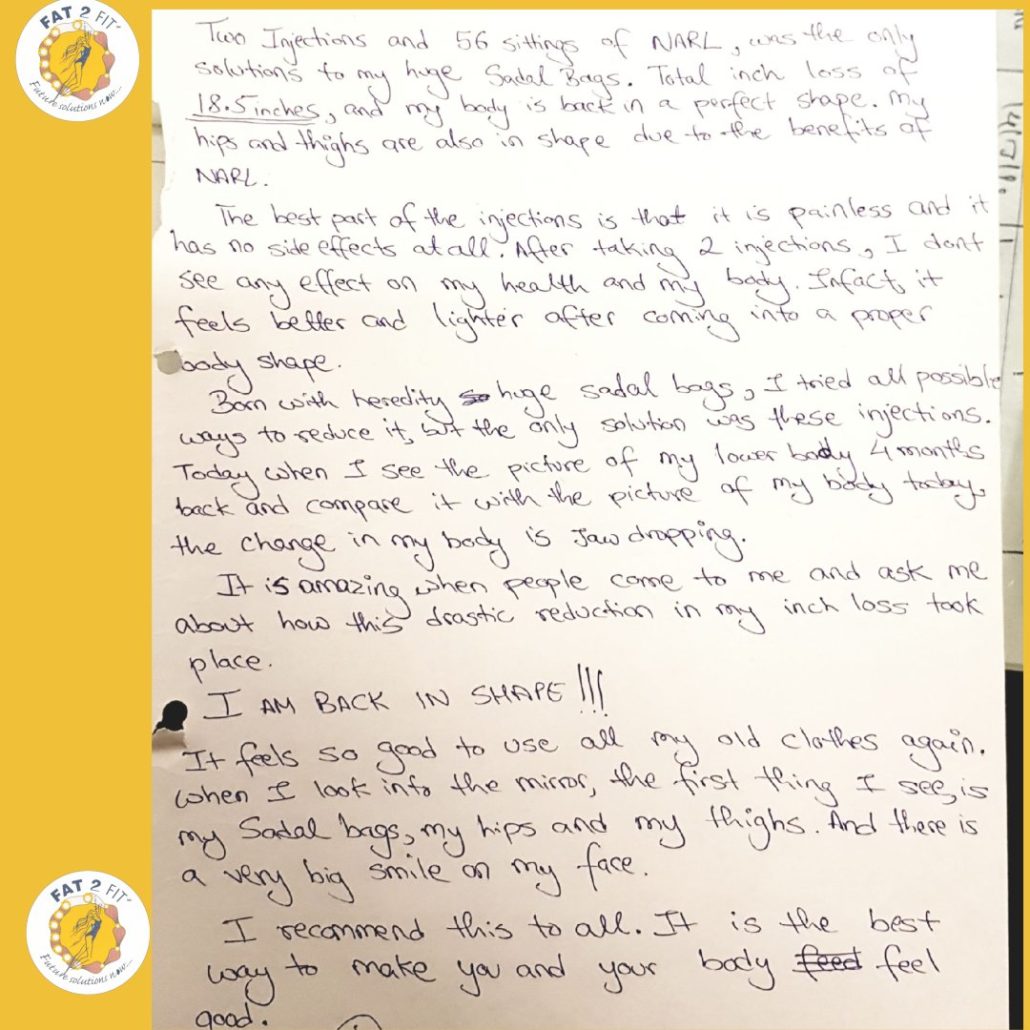 FAT 2 FIT
Future solutions now...
Two Injections and 56 sittings of NARL, was the only
solutions to my huge Sadal Bags. Total inch loss of
18.5 inches, and my body is back in a perfect shape. My
hips and thighs are also in shape due to the benefits of
NARL.
The best part of the injections is that it is painless and it
has no side effects at all. After taking 2 injections, I dont
see any effect on my health and my body. Infact, it
feels better and lighter after coming into a proper
body shape.
Born with heredity so huge sadal bags, I tried all possible
ways to reduce it, but the only solution was these injections.
Today when I see the picture of my lower body 4 months
back and compare it with the picture of my body today,
the change in my body is Jaw dropping.
It is amazing when people come to me and ask me
about how this drastic reduction in my inch loss took
place.
I AM BACK IN SHAPE!!!
It feels so good to use all my old clothes again.
When I look into the mirror, the first thing I see, is
my Sadal bags, my hips and my thighs. And there is
a very big smile on my face.
I recommend this to all. It is the best
way to make you and your body feed feel
good.
FAT 2 FIT
Future solutions now...